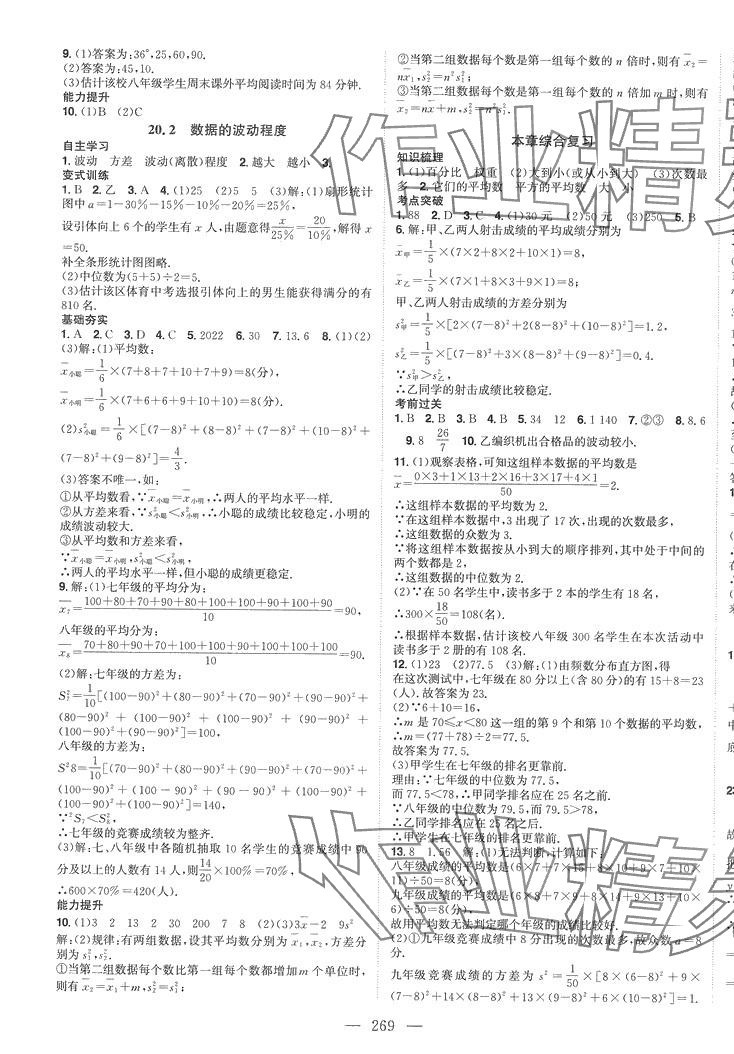 9.(1)答案为:36°,25,60,90.
(2)答案为:45,10.
(3)估计该校八年级学生周末课外平均阅读时间为 84 分钟.
能力提升
10.(1)B (2)C
20.2 数据的波动程度
自主学习
1.波动 方差 波动(离散)程度 2.越大 越小 3.
变式训练
1.B 2.乙 3.A 4.(1)25 (2)5 5 (3)解:(1)扇形统计
图中 a=1-30%-15%-10%-20%=25%,
设引体向上 6 个的学生有 x 人,由题意得 x/25%=20/10%,解得 x
=50.
补全条形统计图图略.
(2)中位数为(5+5)÷2=5.
(3)估计该区体育中考选报引体向上的男生能获得满分的有
810 名.
基础夯实
1.A 2.C 3.D 4.C 5.2022 6.30 7.13.6 8.(1)(2)
(3)解:(1)平均数:
x̄小聪=1/6×(7+8+7+10+7+9)=8(分),
x̄小明=1/6×(7+6+6+9+10+10)=8(分).
(2)s²小聪=1/6×[(7-8)²+(8-8)²+(7-8)²+(10-8)²+
(7-8)²+(9-8)²]=4/3.
(3)答案不唯一,如:
①从平均数看,∵x̄小聪=x̄小明,∴两人的平均水平一样.
②从方差来看,∵s²小聪<s²小明,∴小聪的成绩比较稳定,小明的
成绩波动较大.
③从平均数和方差来看,
∵x̄小聪=x̄小明,s²小聪<s²小明,
∴两人的平均水平一样,但小聪的成绩更稳定.
9.解:(1)七年级的平均分为:
x̄7=(100+80+70+90+80+100+100+90+100+90)/10=90,
八年级的平均分为:
x̄8=(70+80+90+80+100+90+90+100+100+100)/10=90.
(2)解:七年级的方差为:
S²7=1/10[(100-90)²+(80-90)²+(70-90)²+(90-90)²+
(80-90)²+(100-90)²+(100-90)²+(90-90)²+
(100-90)²+(90-90)²]=100,
八年级的方差为:
S²8=1/10[(70-90)²+(80-90)²+(90-90)²+(80-90)²+
(100-90)²+(100-90)²+(90-90)²+(90-90)²+(100-
90)²+(100-90)²+(100-90)²]=140,
∵S²7<S²8,
∴七年级的竞赛成绩较为整齐.
(3)解:七、八年级中各随机抽取 10 名学生的竞赛成绩中 90
分及以上的人数有 14 人,则14/20×100%=70%,
∴600×70%=420(人).
能力提升
10.(1)3 2 13 2 30 200 7 8 (2)(3)3x̄-2 9s²
解:(2)规律:有两组数据,设其平均数分别为 x̄1,x̄2,方差分
别为 s²1,s²2,
①当第二组数据每个数比第一组每个数都增加 m 个单位时,
则有 x̄2=x̄1+m,s²2=s²1;
②当第二组数据每个数是第一组每个数的 n 倍时,则有 x̄2=
nx̄1,s²2=n²s²1;
③当第二组数据每个数是第一组每个数的 n 倍加 m 时,则有
x̄2=nx̄1+m,s²2=n²s²1.
本章综合复习
知识梳理
1.(1)百分比 权重 (2)大到小(或从小到大) (3)次数最
多 2.它们的平均数 平方的平均数 大 小
考点突破
1.88 2.D 3.C 4.(1)30 元 (2)50 元 (3)250 5.B
6.解:甲、乙两人射击成绩的平均成绩分别为
x̄甲=1/5×(7×2+8×2+10×1)=8;
x̄乙=1/5×(7×1+8×3+9×1)=8;
甲、乙两人射击成绩的方差分别为
s²甲=1/5×[2×(7-8)²+2(8-8)²+(10-8)²]=1.2,
s²乙=1/5×[(7-8)²+3×(8-8)²+(9-8)²]=0.4.
∵s²甲>s²乙,
∴乙同学的射击成绩比较稳定.
考前过关
1.B 2.B 3.B 4.B 5.34 12 6.1 140 7.②③ 8.8.6
9.8 26/7 10.乙编织机出合格品的波动较小.
11.(1)观察表格,可知这组样本数据的平均数是
x̄=(0×3+1×13+2×16+3×17+4×1)/50=2.
∴这组样本数据的平均数为 2.
∵在这组样本数据中,3 出现了 17 次,出现的次数最多,
∴这组数据的众数为 3.
∵将这组样本数据按从小到大的顺序排列,其中处于中间的
两个数都是 2,
∴这组数据的中位数为 2.
(2)∵在 50 名学生中,读书多于 2 本的学生有 18 名,
∴300×18/50=108(名).
∴根据样本数据,估计该校八年级 300 名学生在本次活动中
读书多于 2 册的有 108 名.
12.(1)23 (2)77.5 (3)解:(1)由频数分布直方图,得
在这次测试中,七年级在 80 分以上(含 80 分)的有 15+8=23
(人).故答案为 23.
(2)∵6+10=16,
∴m 是 70≤x<80 这一组的第 9 个和第 10 个数据的平均数,
∴m=(77+78)÷2=77.5.
故答案为 77.5.
(3)甲学生在七年级的排名更靠前.
理由:∵七年级的中位数为 77.5,
而 77.5<78,∴甲同学排名应在 25 名之前.
∵八年级的中位数为 79.5,而 79.5>78,
∴乙同学排名应在 25 名之后.
∴甲学生在七年级的排名更靠前.
13.8 1.56 解:(1)无法判断,计算如下:
八年级成绩的平均数是(6×7+7×15+8×10+9×7+10×
11)÷50=8(分).
九年级成绩的平均数是(6×8+7×9+8×14+9×13+10×
6)÷50=8(分),
故用平均数无法判定哪个年级的成绩比较好.
(2)①九年级竞赛成绩中 8 分出现的次数最多,故众数 a=8
分.
九年级竞赛成绩的方差为 s²=1/50×[8×(6-8)²+9×
(7-8)²+14×(8-8)²+13×(9-8)²+6×(10-8)²]=1.
— 269 —
作业精灵
作业精灵